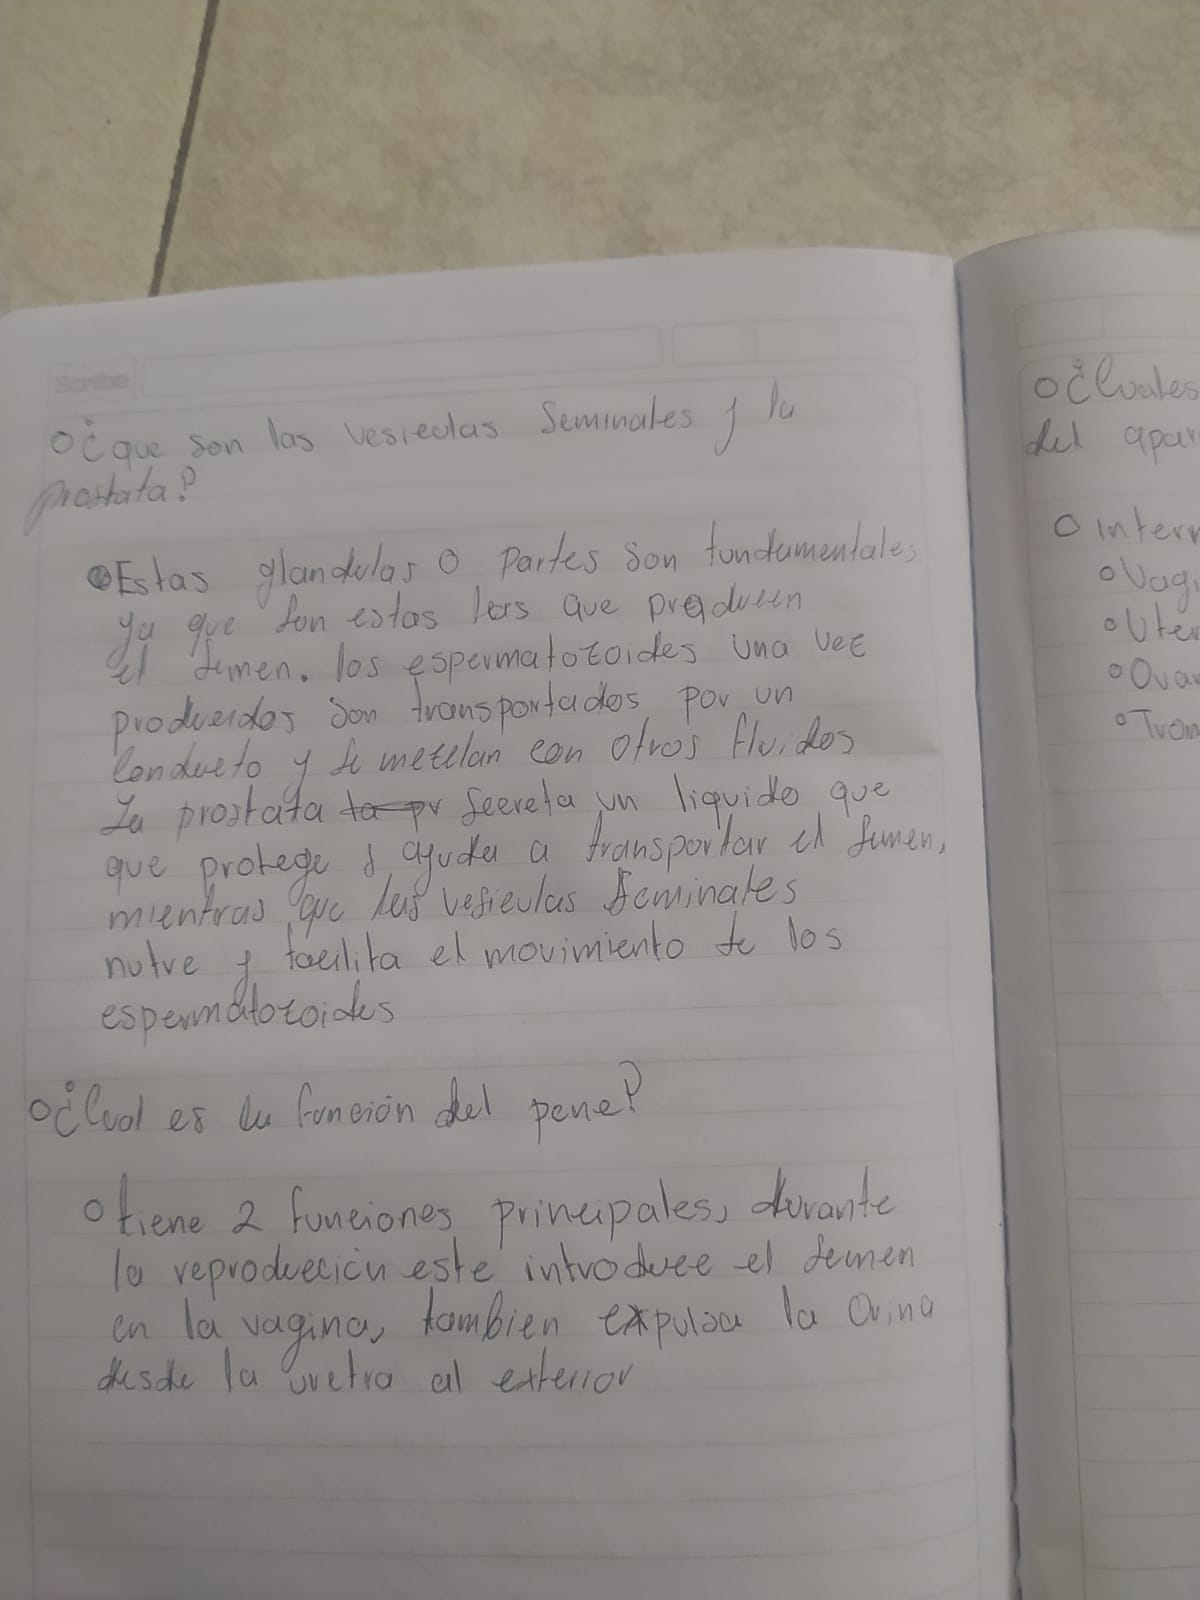 Scribe
○ ¿que son las vesiculas seminales y la
prostata?
Estas glandulas o partes son fundamentales
ya que son estas las que producen
el semen. los espermatozoides una vez
producidos son transportados por un
conducto y se mezclan con otros fluidos
La prostata la pr secreta un liquido que
que protege y ayuda a transportar el semen,
mientras que las vesiculas seminales
nutre y facilita el movimiento de los
espermatozoides
○ ¿Cual es la función del pene?
○ tiene 2 funciones principales, durante
la reproducción este introduce el semen
en la vagina, tambien expulsa la orina
desde la uretra al exterior
○ ¿Cuales
del apar
○ intern
○ Vagi
○ Uter
○ Ovar
○ Trom